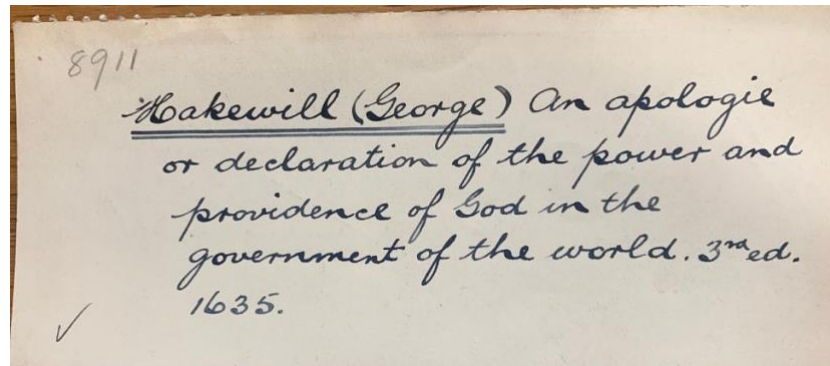 8911
Hakewill (George) An apologie
or declaration of the power and
providence of God in the
government of the world. 3rd ed.
1635.